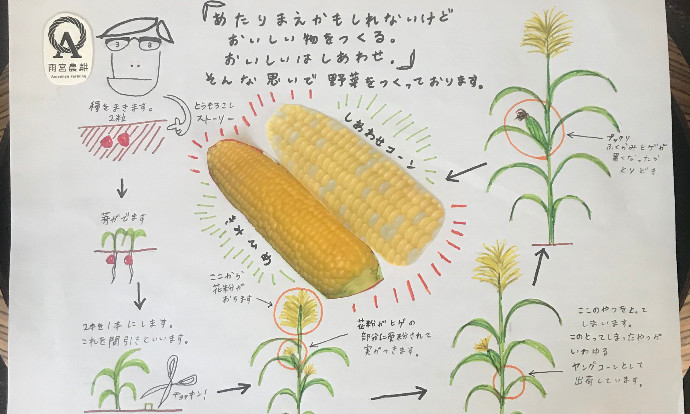 『あたりまえかもしれないけど
おいしい物をつくる。
おいしいはしあわせ。』
そんな思いで野菜をつくっております。
雨宮農耕
種をまきます。
2粒
とうもろこし
ストーリー
芽がでます
2本を1本にします。
これを間引きといいます。
チョッキン!
しあわせコーン
ここから
花粉が
おちます
花粉がヒゲの
部分に受粉されて
実がつきます。
ここのやつをとって
しまいます。
このとってしまったやつが
いわゆる
ヤングコーンとして
出荷しています。
ふくらみヒゲが
黒くなったら
とりどき